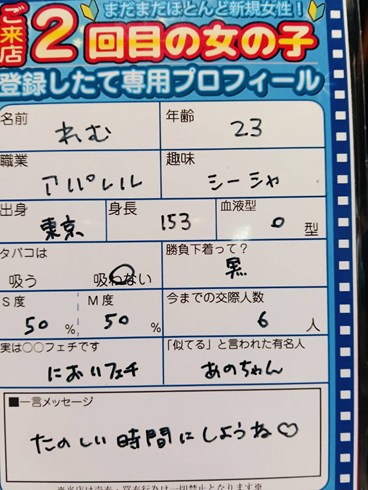 まだまだほとんど新規女性!
ご来店2回目の女の子
登録したて専用プロフィール
名前 れむ 年齢 23
職業 アパレル 趣味 シーシャ
出身 東京 身長 153 血液型 O 型
タバコは 吸う 吸わない 勝負下着って? 黒
S度 50 % M度 50 % 今までの交際人数 6 人
実は○○フェチです においフェチ 「似てる」と言われた有名人 あのちゃん
■一言メッセージ
たのしい時間にしようね♡
※当店は売春・買春行為は一切禁止となります※